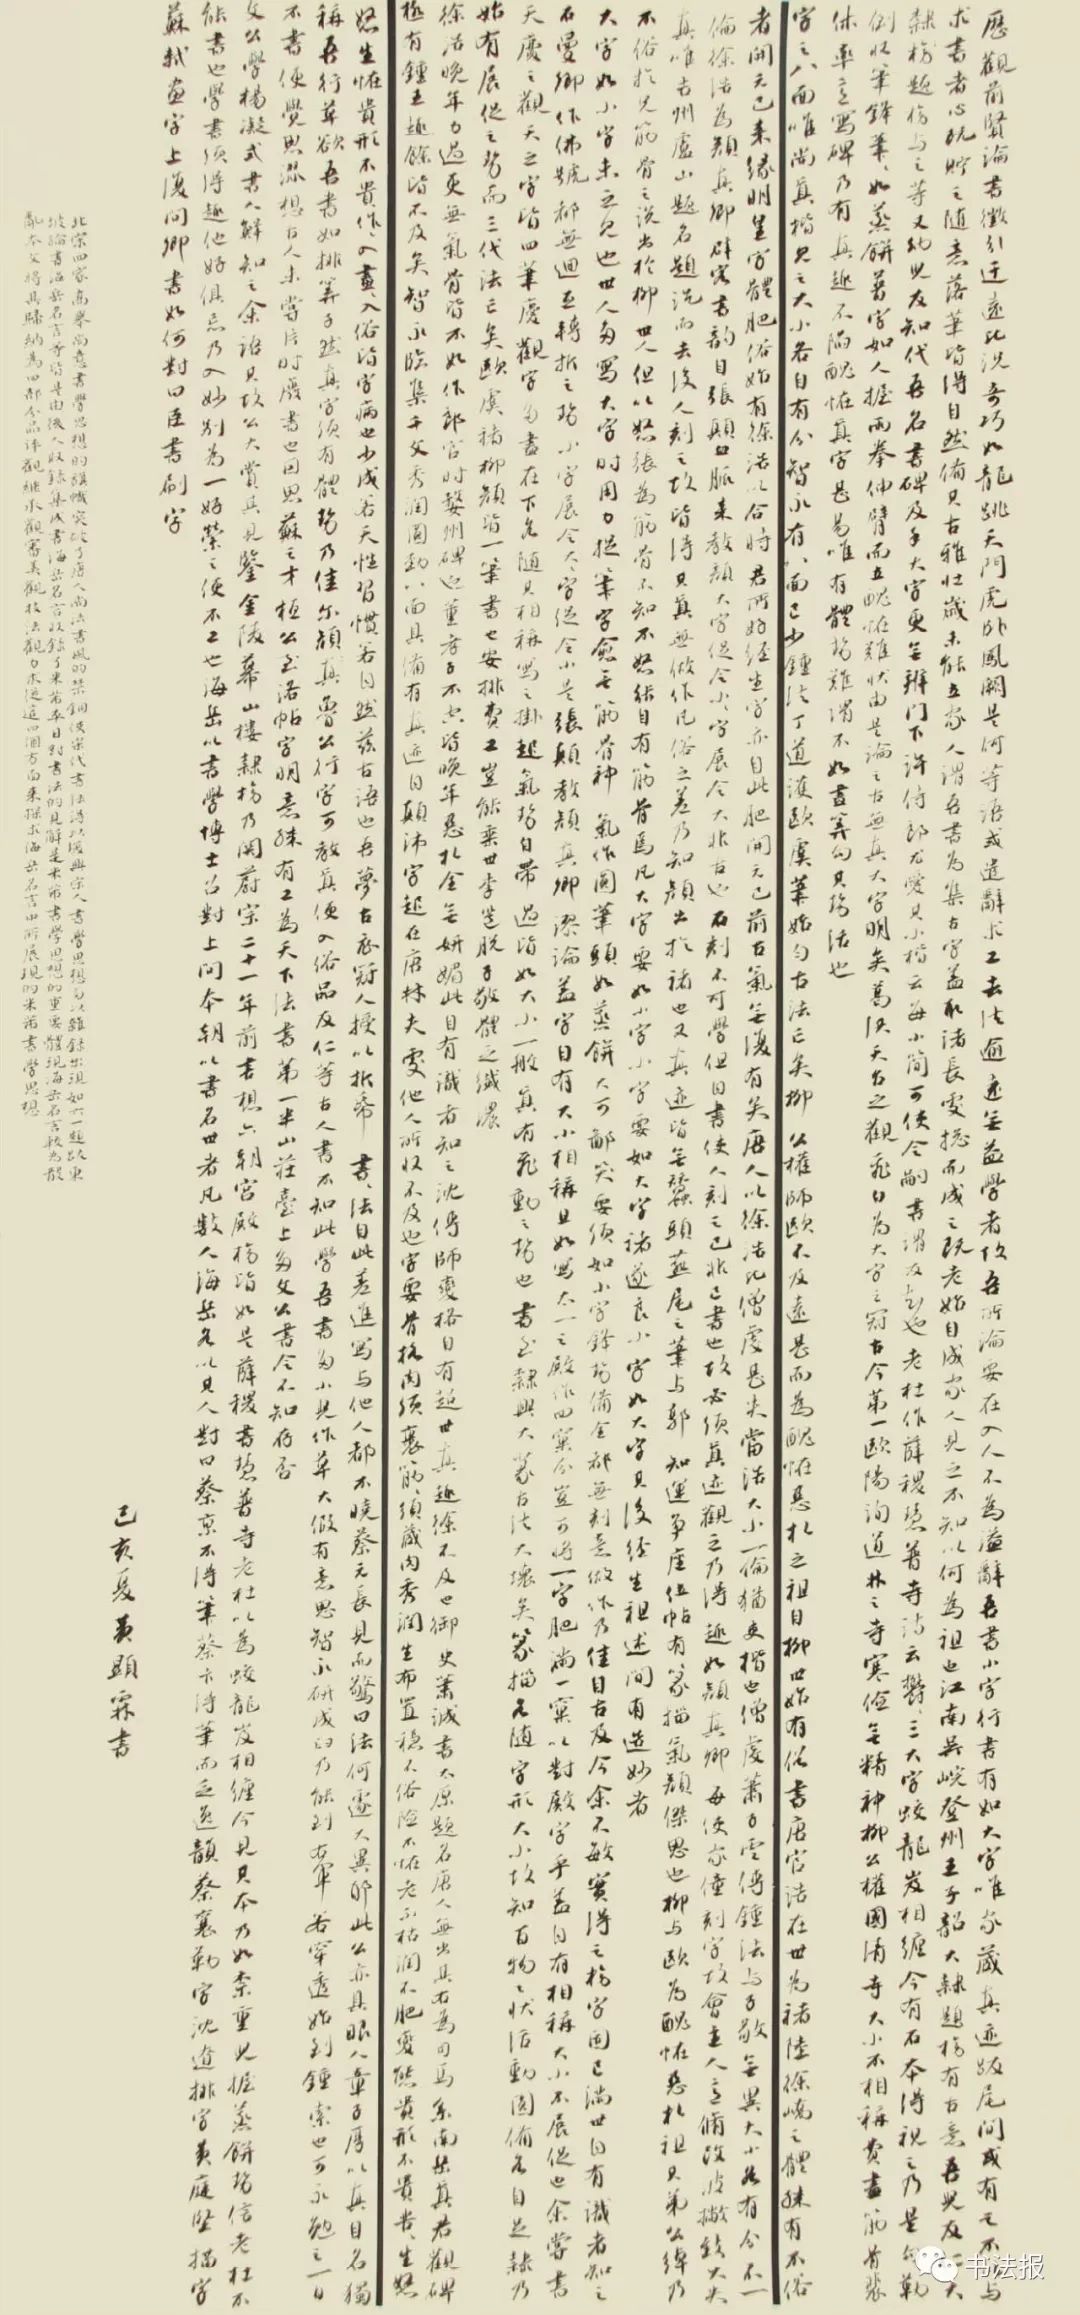 歷觀前賢論書徵引迂遠比況奇巧如龍跳天門虎臥鳳闕是何等語或遣辭求工去法逾遠無益學者故吾所論要在入人不為溢辭吾書小字行書有如大字唯家藏真迹跋尾間或有之不以與
求書者心既貯之隨意落筆皆得自然備其古雅壯歲未能立家人謂吾書為集古字蓋取諸長處總而成之既老始自成家人見之不知以何為祖也江南吳皖登州王子韶大隸題榜有古意吾兒友仁大
隸題榜與之等又幼兒友知代吾名書碑及手大字更無辨門下許侍郎尤愛其小楷云每小簡可使令嗣書謂友知也老杜作薛稷慧普寺詩云鬱鬱三大字蛟龍岌相纏今有石本得視之乃是勾勒
倒收筆鋒筆筆如蒸餅普字如人握兩拳伸臂而立醜怪難狀由是論之古無真大字明矣葛洪天台之觀飛白為大字之冠古今第一歐陽詢道林之寺寒儉無精神柳公權國清寺大小不相稱費盡筋骨裴
休率意寫碑乃有真趣不陷醜怪真字甚易唯有體勢難謂不如畫算勻其勢活也
字之八面唯尚真楷見之大小各自有分智永有八面已少鍾法丁道護歐虞筆始勻古法亡矣柳公權師歐不及遠甚而為醜怪惡札之祖自柳世始有俗書唐官誥在世為褚陸徐嶠之體殊有不俗
者開元已來緣明皇字體肥俗始有徐浩以合時君所好經生字亦自此肥開元已前古氣無復有矣唐人以徐浩比僧虔甚失當浩大小一倫猶吏楷也僧虔蕭子雲傳鍾法與子敬無異大小各有分不一
倫徐浩為顏真卿辟客書韻自張顛血脈來教顏大字促令小字展令大非古也石刻不可學但自書使人刻之已非己書也故必須真迹觀之乃得趣如顏真卿每使家僮刻字故會主人意修改波撇致大失
真唯吉州廬山題名題訖而去後人刻之故皆得其真無做作凡俗之差乃知顏出於褚也又真迹皆無蠶頭燕尾之筆與郭知運爭座位帖有篆籀氣顏傑思也柳與歐為醜怪惡札祖其弟公綽乃
不俗於兄筋骨之說出於柳世人但以怒張為筋骨不知不怒張自有筋骨焉凡大字要如小字小字要如大字褚遂良小字如大字其後經生祖述間有造妙者
大字如小字未之見也世人多寫大字時用力捉筆字愈無筋骨神氣作圓筆頭如蒸餅大可鄙笑要須如小字鋒勢備全都無刻意做作乃佳自古及今余不敏實得之榜字固已滿世自有識者知之
石曼卿作佛號都無迴互轉折之勢小字展令大大字促令小是張顛教顏真卿謬論蓋字自有大小相稱且如寫太一之殿作四窠分豈可將一字肥滿一窠以對殿字乎蓋自有相稱大小不展促也余嘗書
天慶之觀天之字皆四筆慶觀字多畫在下各隨其相稱寫之掛起氣勢自帶過皆如大小一般真有飛動之勢也書至隸興大篆古法大壞矣篆籀各隨字形大小故知百物之狀活動圓備各自足隸乃
始有展促之勢而三代法亡矣歐虞褚柳顏皆一筆書也安排費工豈能垂世李邕脫子敬體乏纖濃
徐浩晚年力過更無氣骨皆不如作郎官時婺州碑也董孝子不空皆晚年惡札全無妍媚此自有識者知之沈傳師變格自有超世真趣徐不及也御史蕭誠書太原題名唐人無出其右為司馬系南岳真君觀碑
極有鍾王趣餘皆不及矣智永臨集千文秀潤圓勁八面具備有真迹自顛沛字起在唐林夫處他人所收不及也字要骨格肉須裹筋筋須藏肉秀潤生布置穩不俗險不怪老不枯潤不肥變態貴形不貴苦苦生怒
怒生怪貴形不貴作作入畫畫入俗皆字病也少成若天性習慣若自然茲古語也吾夢古衣冠人授以折紙書書法自此差進寫與他人都不曉蔡元長見而驚曰法何遽大異耶此公亦具眼人章子厚以真自名獨
稱吾行草欲吾書如排算子然真字須有體勢乃佳爾顏真魯公行字可教真便入俗品友仁等古人書不知此學吾書多小兒作草大假有意思智永研成臼乃能到右軍若穿透始到鍾索也可永勉之一日
不書便覺思澀想古人未嘗片時廢書也因思蘇之才恆公至洛帖字明意殊有工為天下法書第一半山莊臺上多文公書今不知存否
文公學楊凝式書人鮮知之余語其故公大賞其見鑒金陵幕山樓隸榜乃關蔚宗二十一年前書想六朝宮殿榜皆如是薛稷書慧普寺老杜以為蛟龍岌相纏今見其本乃如柰重兒握蒸餅勢信老杜不
能書也學書須得趣他好俱忘乃入妙別為一好縈之便不工也海岳以書學博士召對上問本朝以書名世者凡數人海岳各以其人對曰蔡京不得筆蔡卞得筆而乏逸韻蔡襄勒字沈遼排字黃庭堅描字
蘇軾畫字上復問卿書如何對曰臣書刷字
北宋四家高舉尚意書學思想的旗幟突破了唐人尚法書風的禁錮使宋代書法得以復興宋人書學思想多以雜錄出現如六一題跋東
坡論書海岳名言等皆是由後人收錄集成書海岳名言收錄了米芾平日對書法的見解是米芾書學思想的重要體現海岳名言較為散
亂本文將其歸納為四部分品評觀繼承觀審美觀技法觀力求從這四個方面來探求海岳名言中所展現的米芾書學思想
己亥夏黃顯霖書
书法报